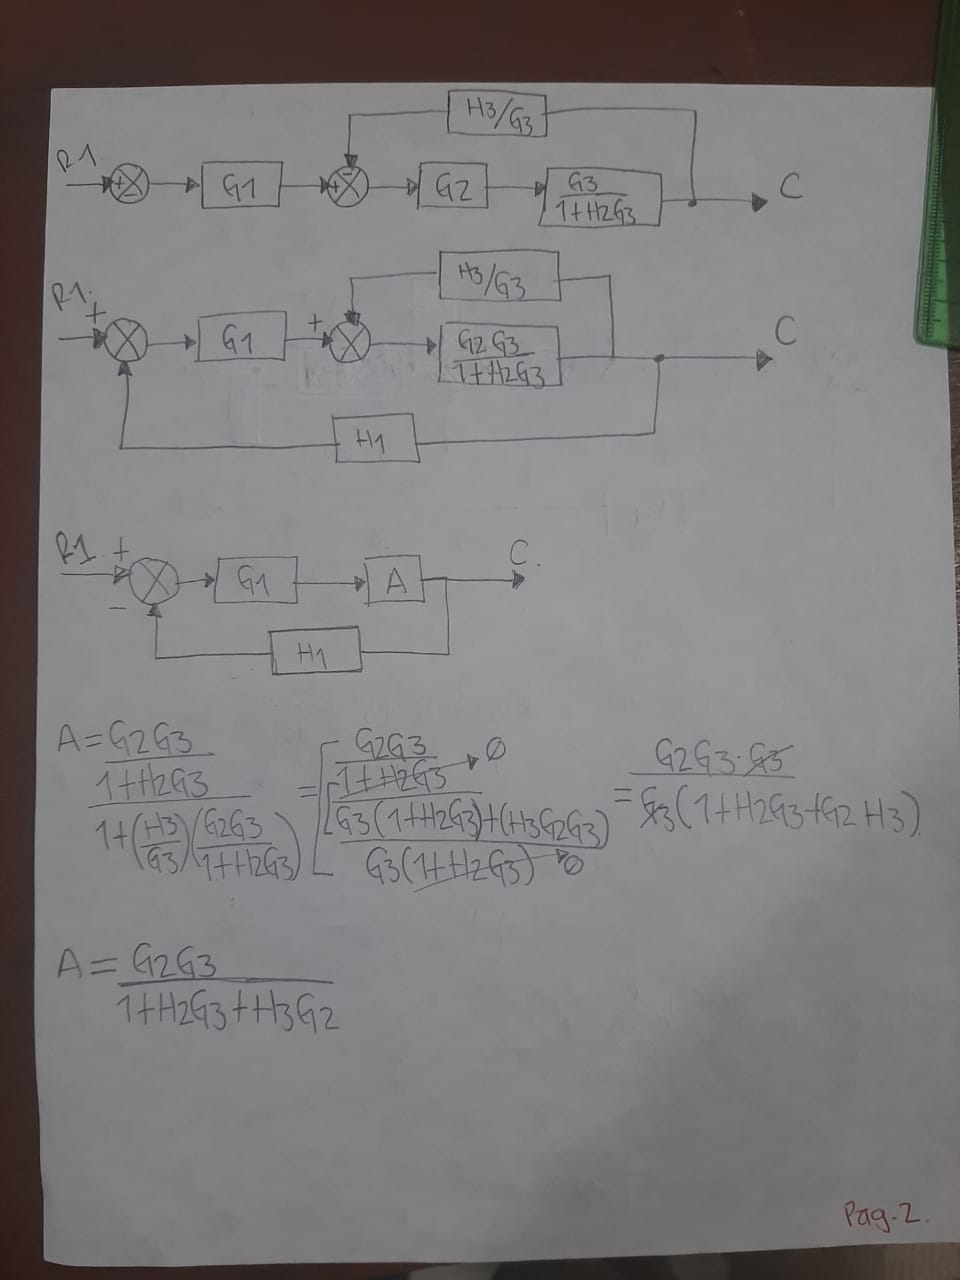 H3/G3
R1. + - G1 + - G2 G3/(1+H2G3) C
H3/G3
R1. + G1 + G2G3/(1+H2G3) C
H1
R1. + - G1 A C.
H1
A = (G2G3/(1+H2G3))/(1+(H3/G3)(G2G3/(1+H2G3))) = [(G2G3/(1+H2G3))→0/((G3(1+H2G3)+(H3G2G3))/(G3(1+H2G3)))→0 = G2G3·G3/(G3(1+H2G3+G2H3))
A = G2G3/(1+H2G3+H3G2)
Pag.2.